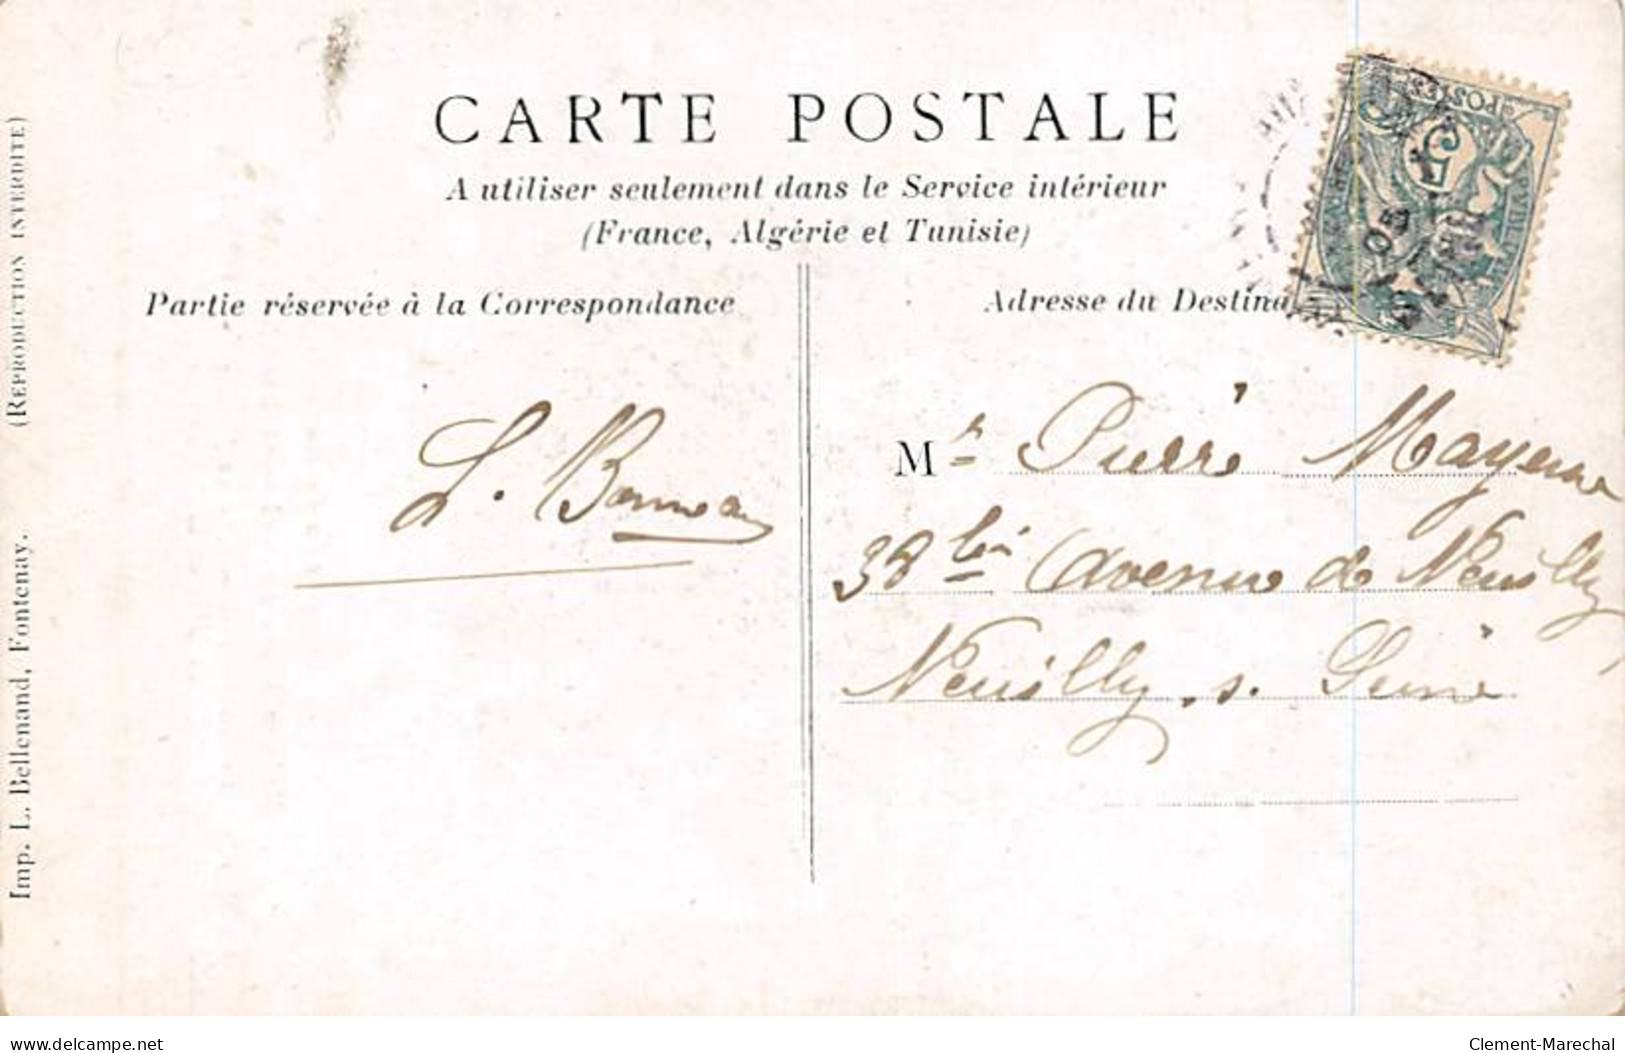 CARTE POSTALE
A utiliser seulement dans le Service intérieur
(France, Algérie et Tunisie)
Partie réservée à la Correspondance
Adresse du Destina
POSTES
5
05
L. Bonneau
Mr Pierre Mayenne
38 bis Avenue de Neuilly
Neuilly s. Seine
(REPRODUCTION INTERDITE)
Imp. L. Bellenand, Fontenay.
www.delcampe.net
Clement-Marechal